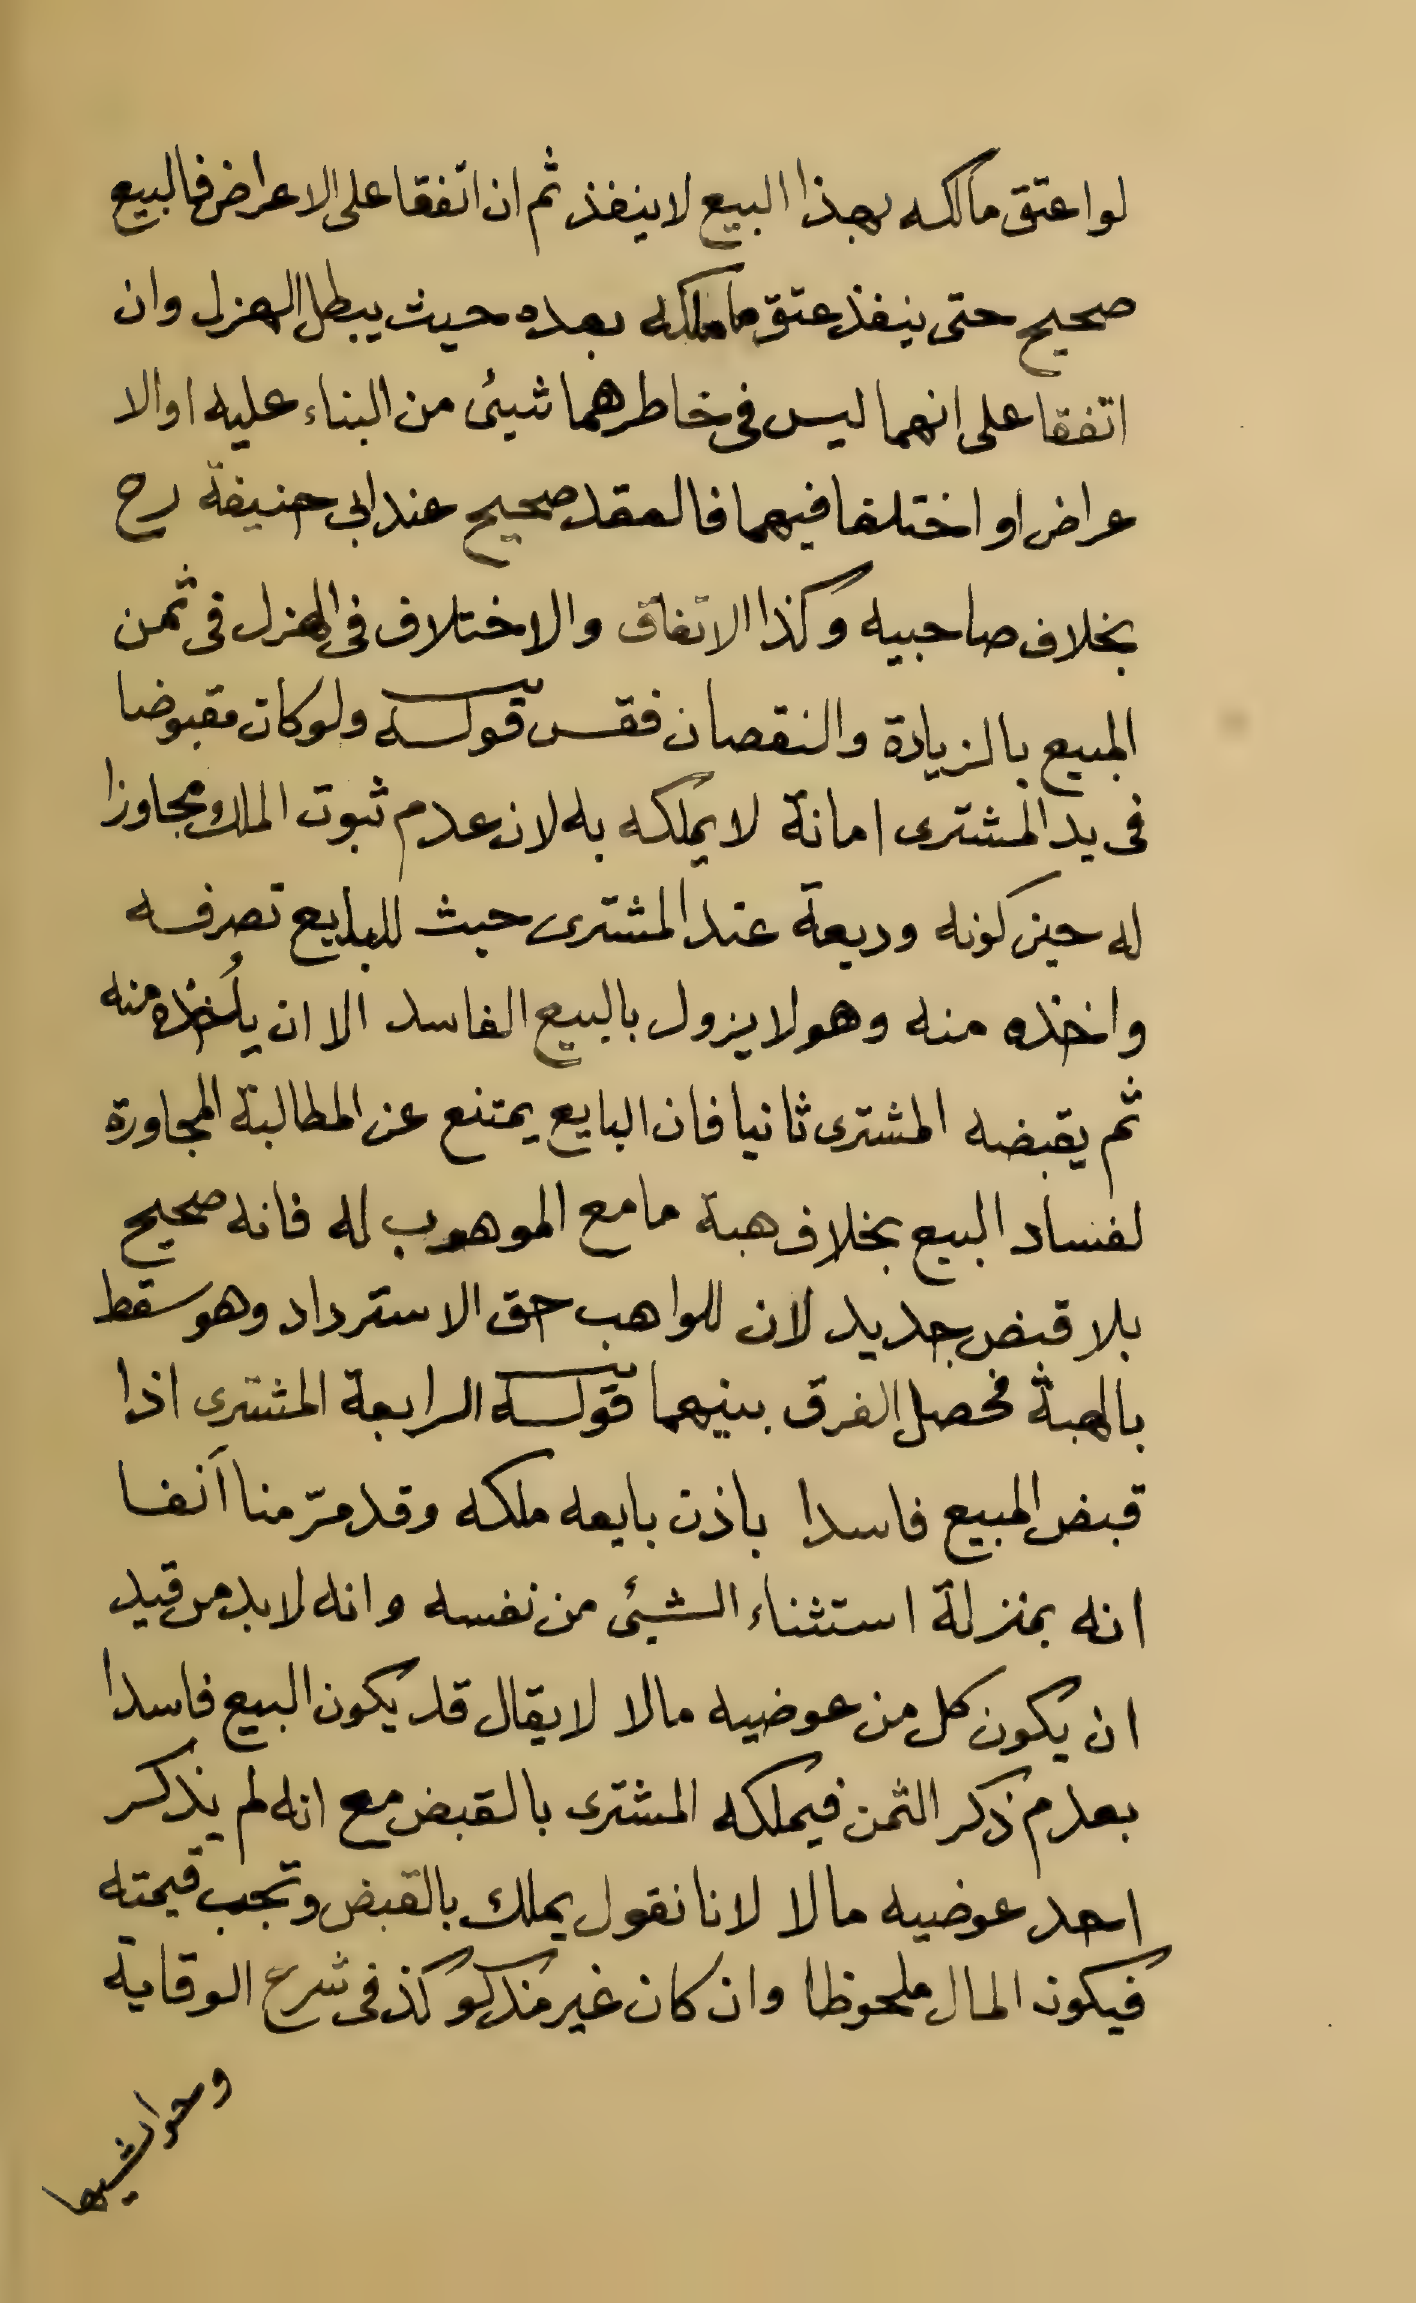 لو اعتق مالكه بهذا البيع لا ينفذ ثم ان اتفقا على الاعراض فالبيع
صحيح حتى ينفذ عتق ما ملكه بعده حيث يبطل الهزل وان
اتفقا على انهما ليس فى خاطرهما شيئ من البناء عليه او الا
عراض او اختلفا فيهما فالعقد صحيح عند ابى حنيفة رح
بخلاف صاحبيه وكذا الاتفاق والاختلاف فى الهزل فى ثمن
المبيع بالزيادة والنقصان فقس قوله ولو كان مقبوضا
فى يد المشترى امانة لا يملكه به لان عدم ثبوت الملك مجاوزا
له حين كونه وديعة عند المشترى حيث للبايع تصرفه
واخذه منه وهو لا يزول بالبيع الفاسد الا ان يأخذه منه
ثم يقبضه المشترى ثانيا فان البايع يمتنع عن المطالبة المجاورة
لفساد البيع بخلاف هبة ما مع الموهوب له فانه صحيح
بلا قبض جديد لان للواهب حق الاسترداد وهو سقط
بالهبة فحصل الفرق بينهما قوله الرابعة المشترى اذا
قبض المبيع فاسدا باذن بايعه ملكه وقد مرّ منا آنفا
انه بمنزلة استثناء الشيئ من نفسه وانه لا بد من قيد
ان يكون كل من عوضيه مالا لا يقال قد يكون البيع فاسدا
بعدم ذكر الثمن فيملكه المشترى بالقبض مع انه لم يذكر
احد عوضيه مالا لانا نقول يملك بالقبض وتجب قيمته
فيكون المال ملحوظا وان كان غير مذكو كذ فى شرح الوقاية
وحواشيها